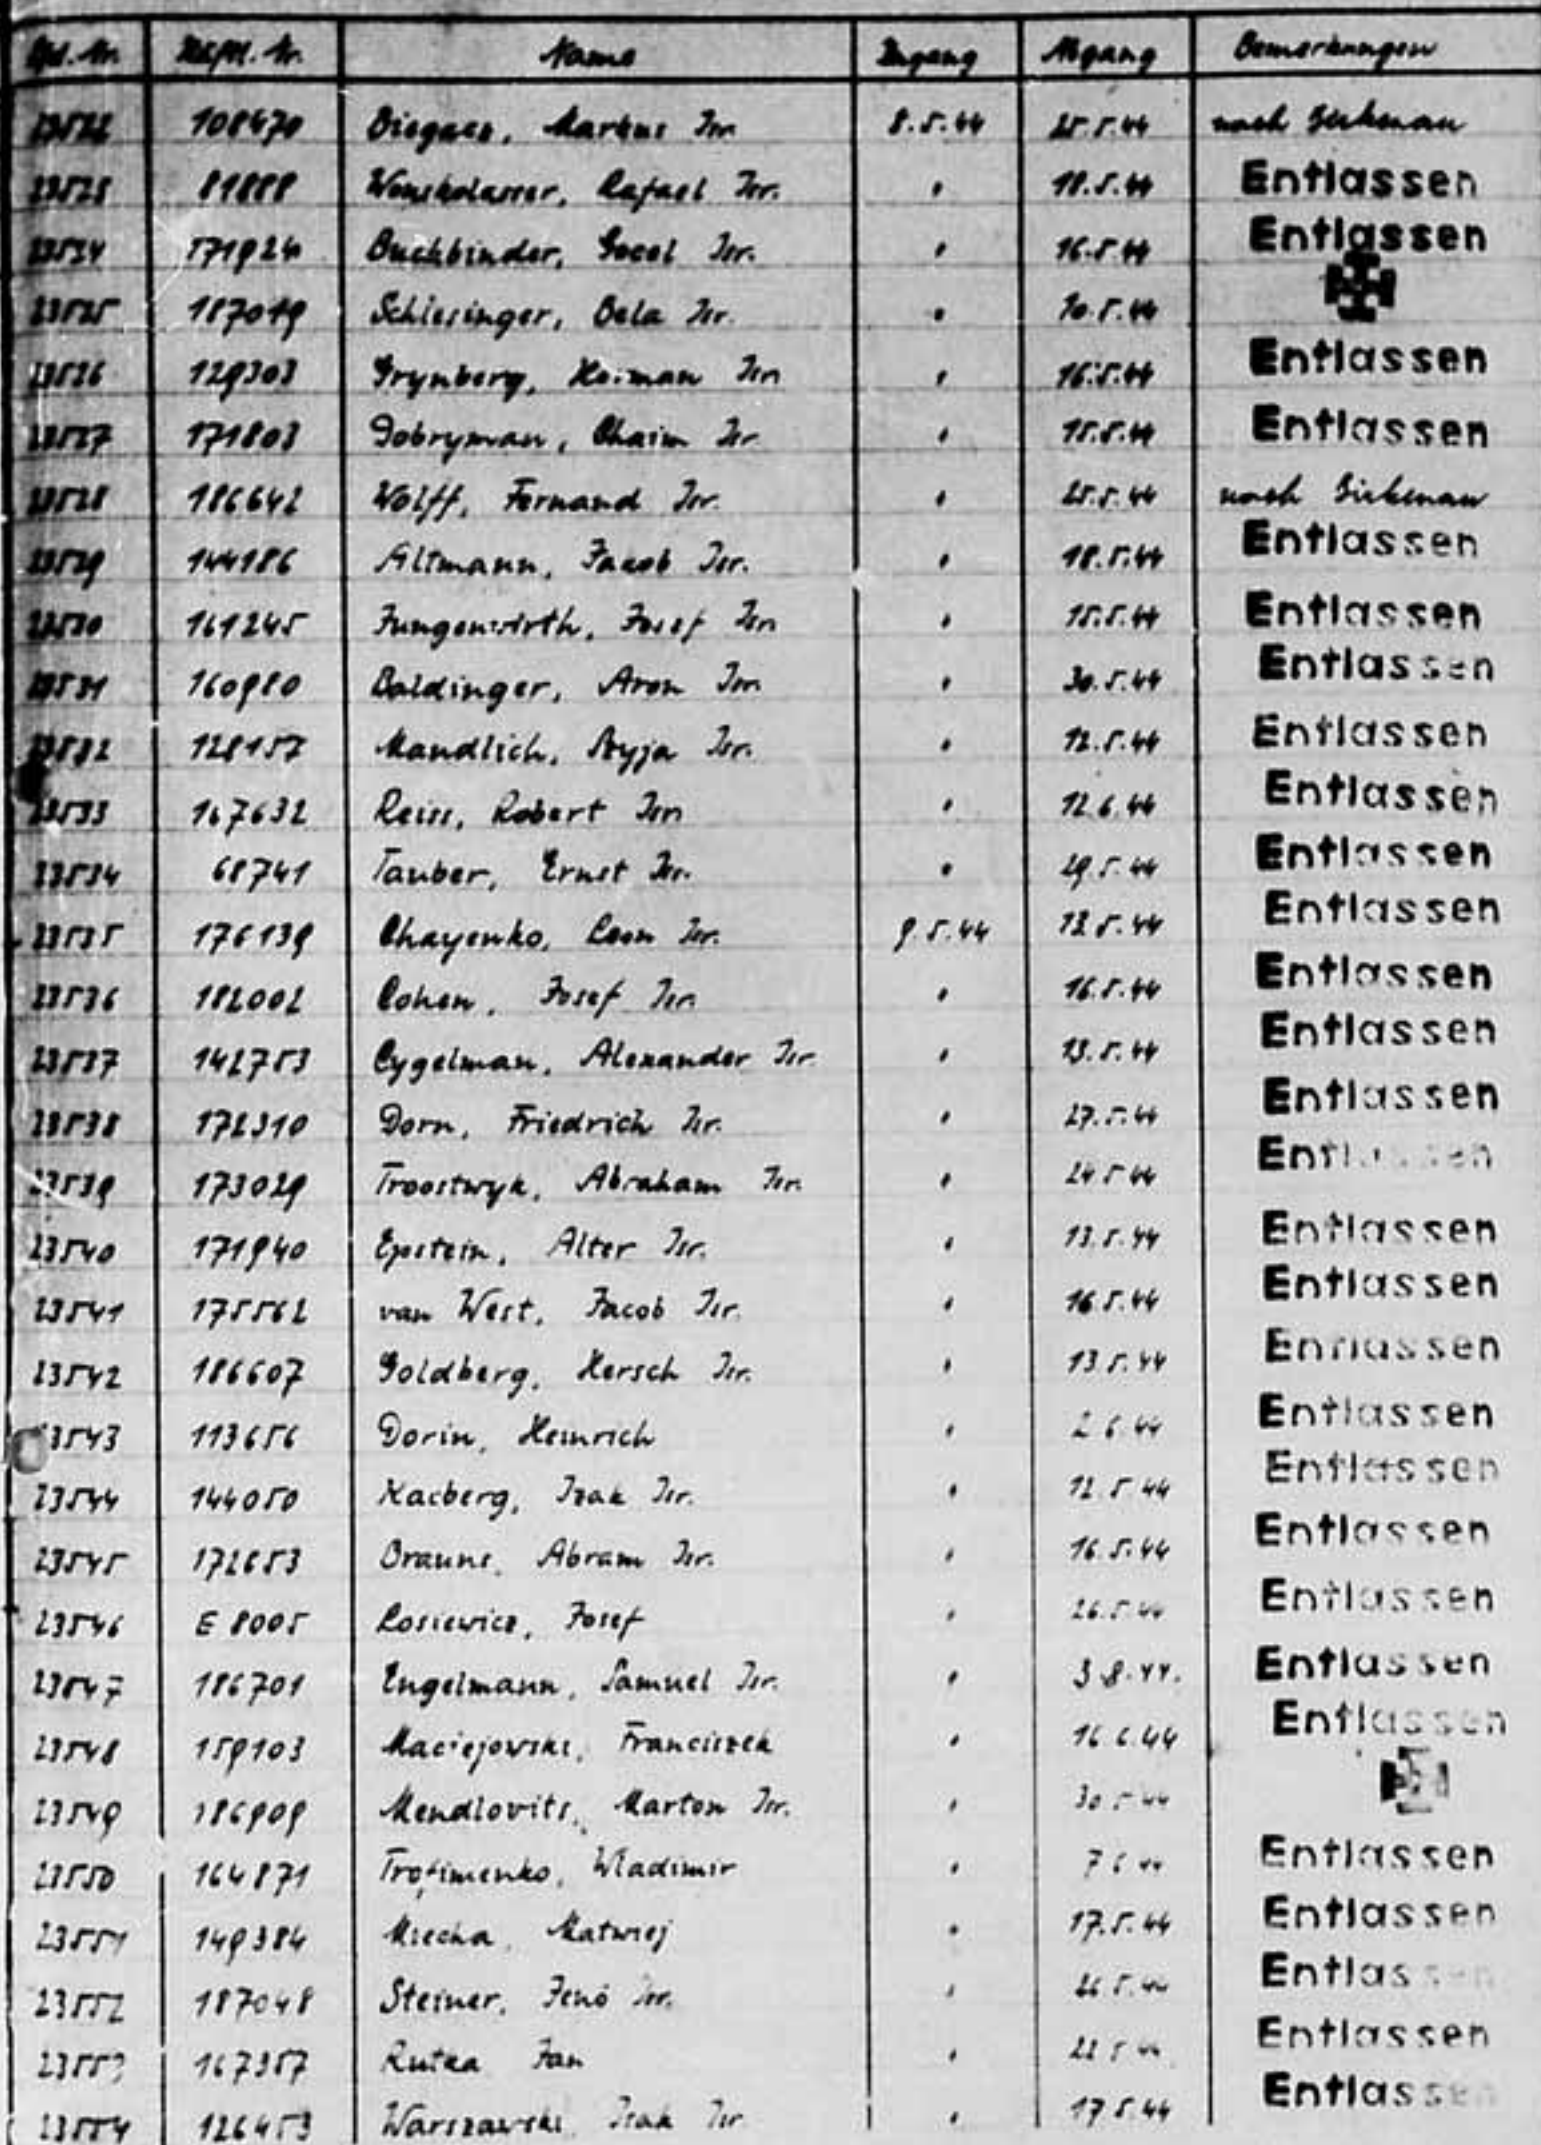 Lfd. Nr. Häftl. Nr. Name Zugang Abgang Bemerkungen
23522 108470 Markus Isr. 8.5.44 25.5.44 nach Birkenau
23523 81888 Rafael Isr. " 18.5.44 Entlassen
23524 171924 Buchbinder, Gocel Isr. " 16.5.44 Entlassen
23525 187019 Schlesinger, Bela Isr. " 10.5.44
23526 129303 Grynberg, Heiman Isr. " 16.5.44 Entlassen
23527 171803 Dobryman, Chaim Isr. " 15.5.44 Entlassen
23528 186642 Wolff, Fernand Isr. " 25.5.44 nach Birkenau
23529 144186 Altmann, Jacob Isr. " 18.5.44 Entlassen
23530 161245 Jungenwirth, Josef Isr. " 15.5.44 Entlassen
23531 160980 Baldinger, Aron Isr. " 30.5.44 Entlassen
23532 128157 Mandlich, Isr. " 12.5.44 Entlassen
23533 167632 Reiss, Robert Isr. " 12.6.44 Entlassen
23534 68741 Tauber, Ernst Isr. " 29.5.44 Entlassen
23535 176139 Chayenko, Leon Isr. 9.5.44 12.5.44 Entlassen
23536 182002 Cohen, Josef Isr. " 16.5.44 Entlassen
23537 142753 Cygelman, Alexander Isr. " 13.5.44 Entlassen
23538 172310 Dorn, Friedrich Isr. " 27.5.44 Entlassen
23539 173029 Troostwyk, Abraham Isr. " 24.5.44 Entlassen
23540 171940 Epstein, Alter Isr. " 13.5.44 Entlassen
23541 175562 van West, Jacob Isr. " 16.5.44 Entlassen
23542 186607 Goldberg, Hersch Isr. " 13.5.44 Entlassen
23543 113656 Dorin, Heinrich " 2.6.44 Entlassen
23544 144050 Kacberg, Izak Isr. " 12.5.44 Entlassen
23545 172653 Brauns, Abram Isr. " 16.5.44 Entlassen
23546 E 8005 Losiewicz, Josef " 26.5.44 Entlassen
23547 186701 Engelmann, Samuel Isr. " 3.8.44. Entlassen
23548 159103 Maciejowski, Franciszek " 16.6.44 Entlassen
23549 186909 Mendlovits, Marton Isr. " 30.5.44
23550 164871 Trofimenko, Wladimir " 7.6.44 Entlassen
23551 149384 Miecha, Matwiej " 17.5.44 Entlassen
23552 187048 Steiner, Jenö Isr. " 26.5.44 Entlassen
23553 167357 Rutka Jan " 22.5.44 Entlassen
23554 126453 Warszawski Izak Isr. " 17.5.44 Entlassen